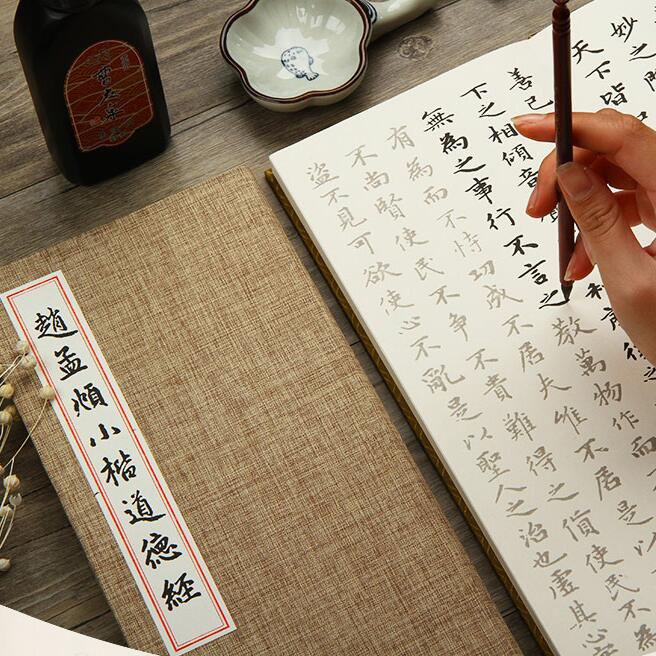 趙孟頫小楷道德經
妙之門
天下皆
善已
下之相傾音
無為之事行不言之教萬物作而
有為而不恃功成不居夫惟不居是以
不尚賢使民不爭不貴難得之貨使民不
盜不見可欲使心不亂是以聖人之治也虛其心